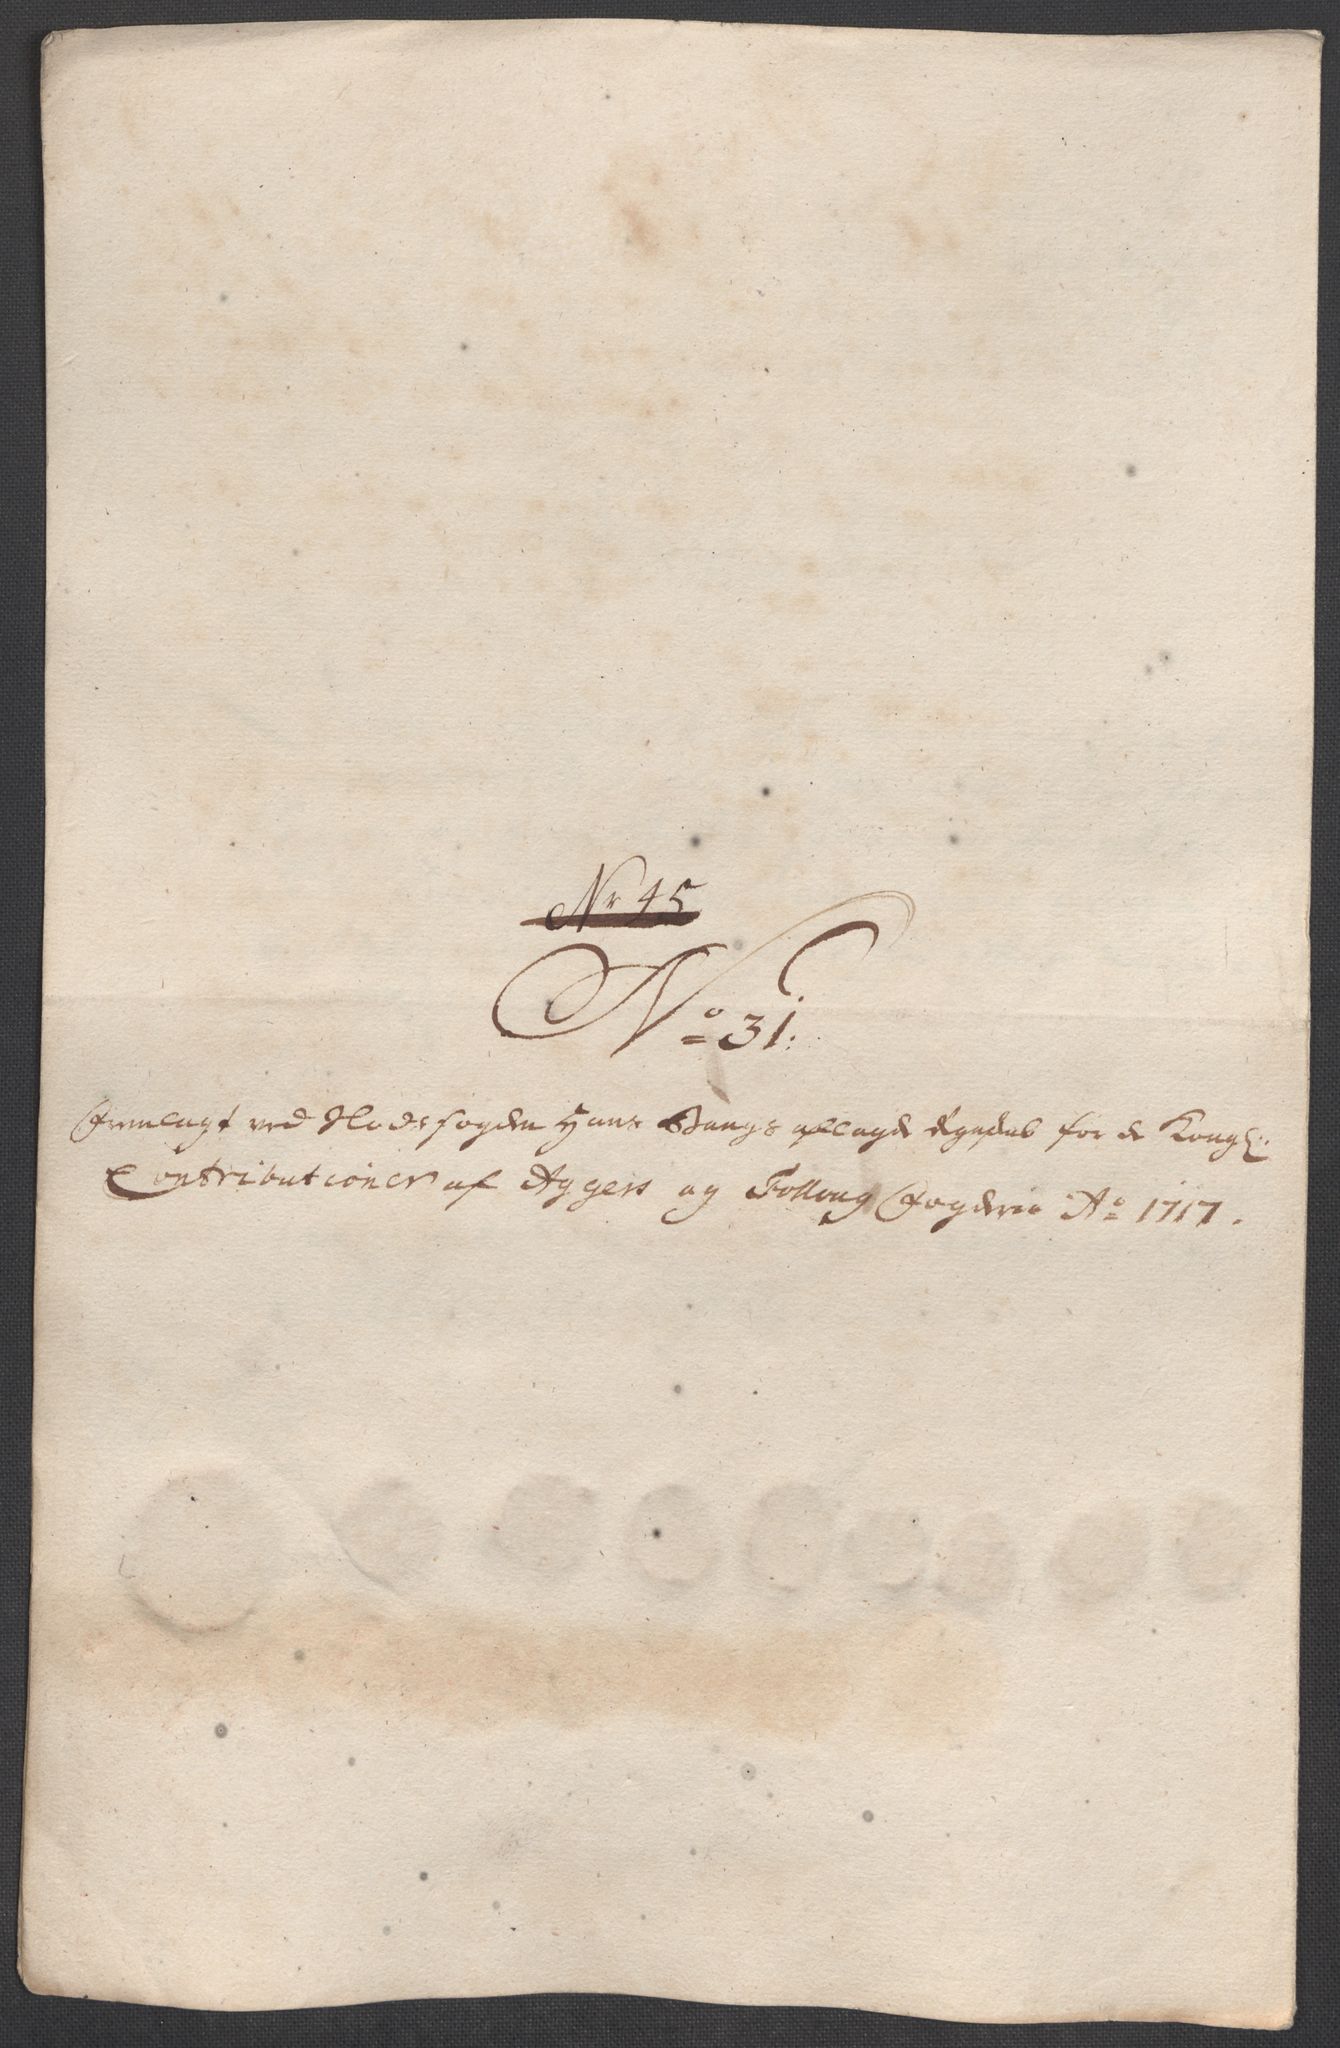 Nr 45
No 31.
Fremlagt ved Slodsfogden Hans Bangs aflagde Regnskab for de Kongl:
Contributioner af Aggers og Folloug Fogderie Ao 1717.